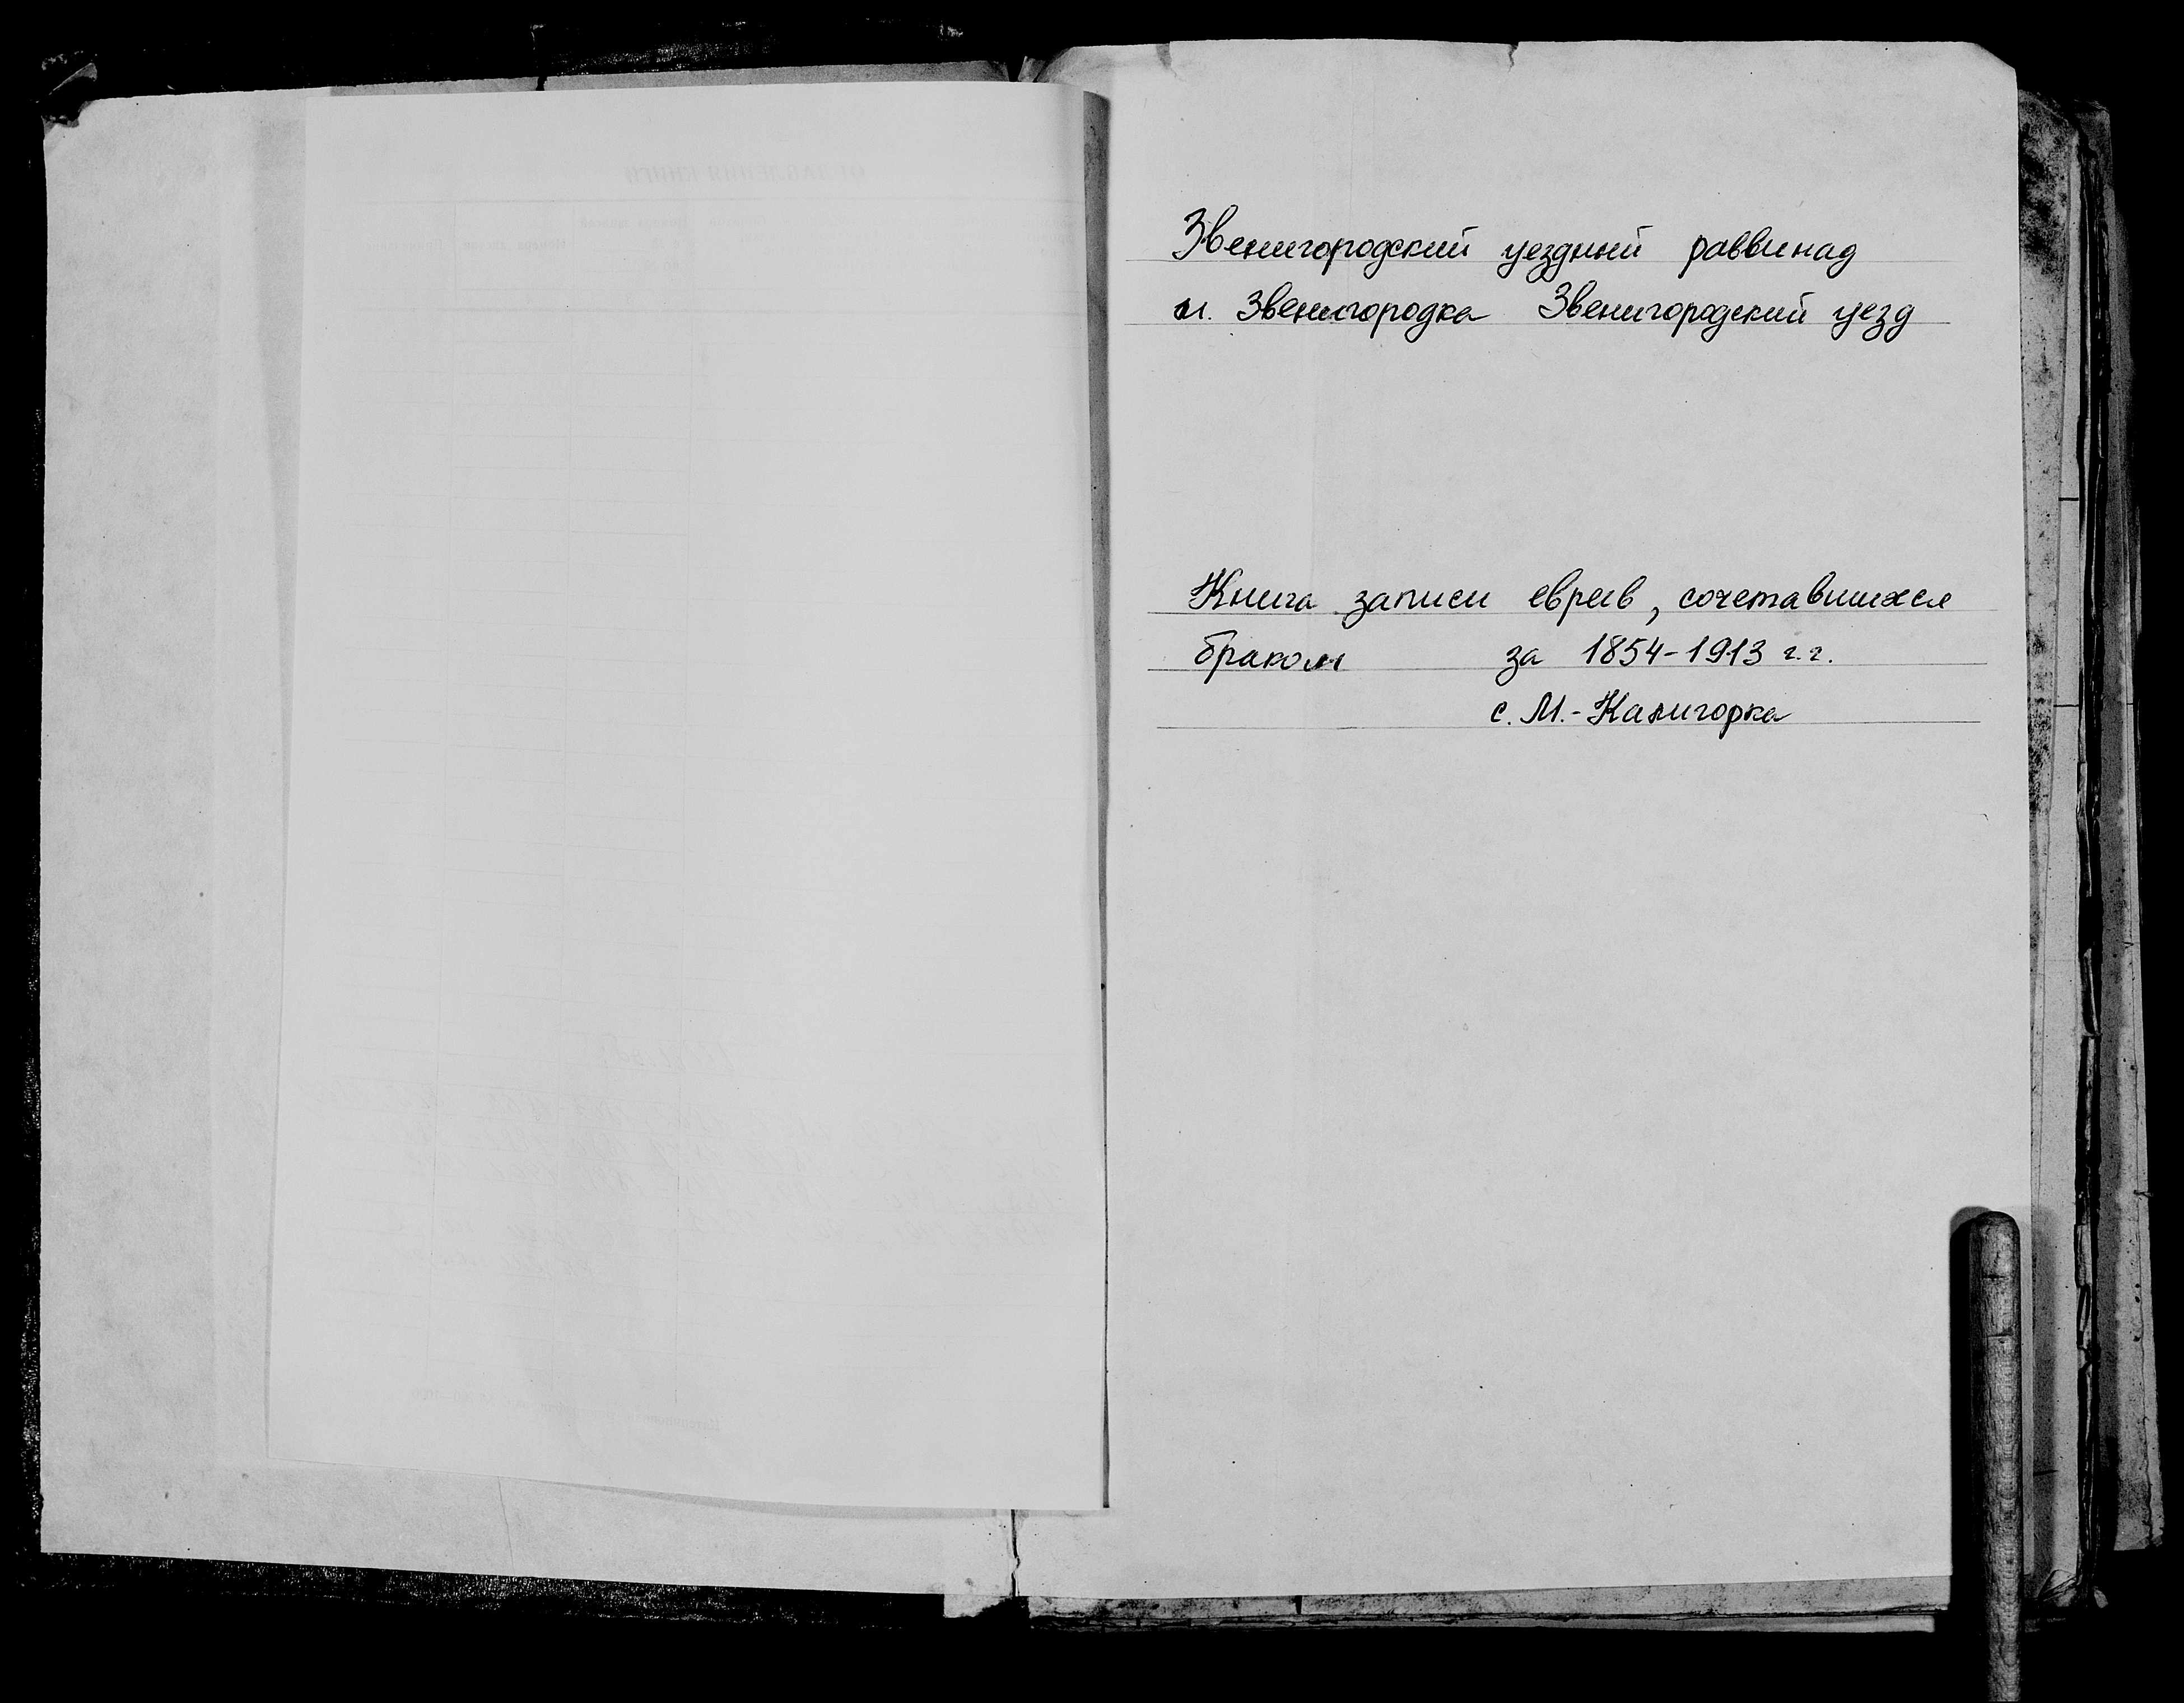 Звенигородский уездный раввинад
м. Звенигородка Звенигородский уезд
Книга записи евреев, сочетавшихся
браком за 1854-1913 г.г.
с. М.-Калигорка